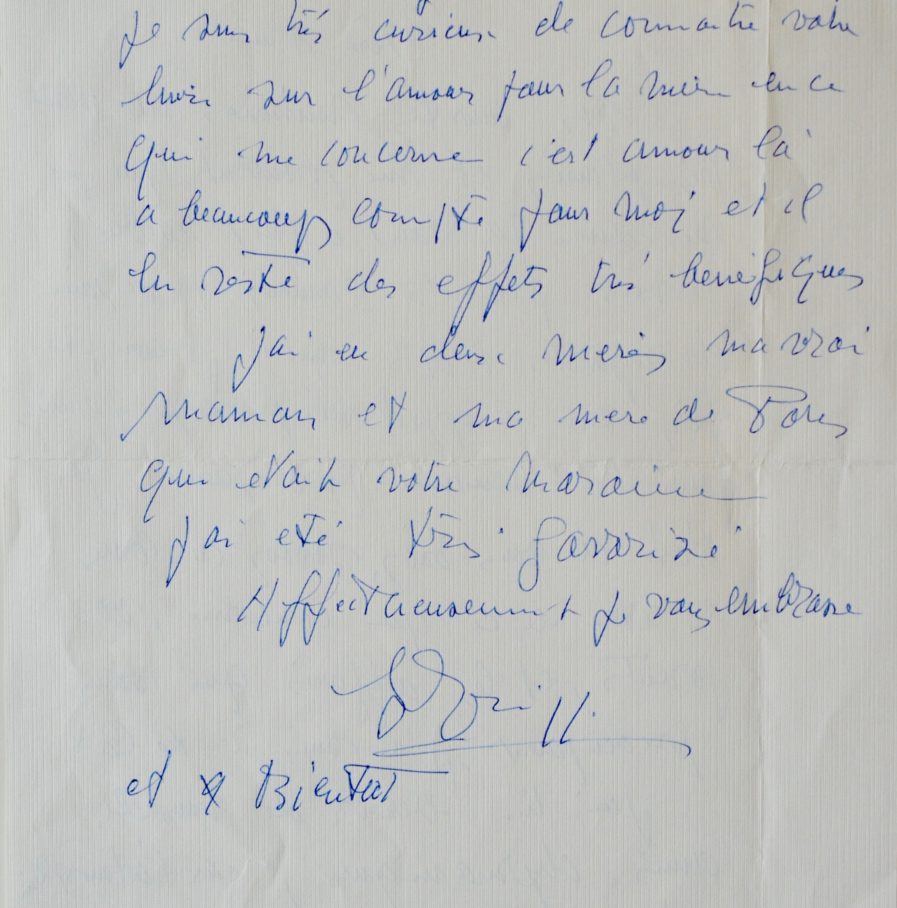 Je suis très curieux de connaitre votre
livre sur l'amour pour la mère en ce
qui me concerne c'est amour là
a beaucoup compté pour moi et il
en reste des effets très benéfiques
J'ai eu deux mères ma vrai
maman et ma mere de Paris
qui etait votre marraine
J'ai eté très favorisé
Affectueusement je vous embrasse
et a Bientot